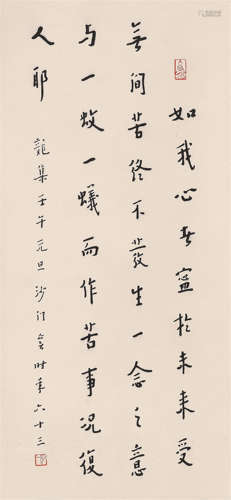 如我心者寧於未来受
無間苦終不發生一念之意
与一蚊一蟻而作苦事况復
人耶 龍集壬午元旦沙门时年六十三